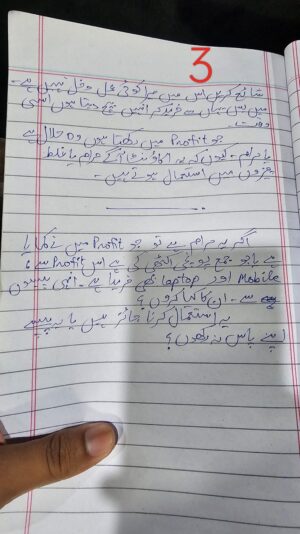 3
شائع کریں اس میں میرا کوئی عمل دخل نہیں ہے۔
میں بس یہاں سے خرید کر انہیں بیچ دیتا ہوں اسی
وقت۔
جو Profit میں رکھتا ہوں وہ حلال ہے
یا حرام۔ کیوں کہ یہ اکاؤنٹ آگے حرام یا غلط
چیزوں میں استعمال ہوتے ہیں۔
اگر یہ حرام ہے تو جو Profit میں نے کمایا
ہے یا جو جمع پونجی اکٹھی کی ہے اس Profit سے
Mobile اور Laptop بھی خریدا ہے۔ انہی پیسوں
سے۔ ان کا کیا کروں؟
یہ استعمال کرنا جائز ہیں یا یہ پیسے
اپنے پاس نہ رکھوں؟